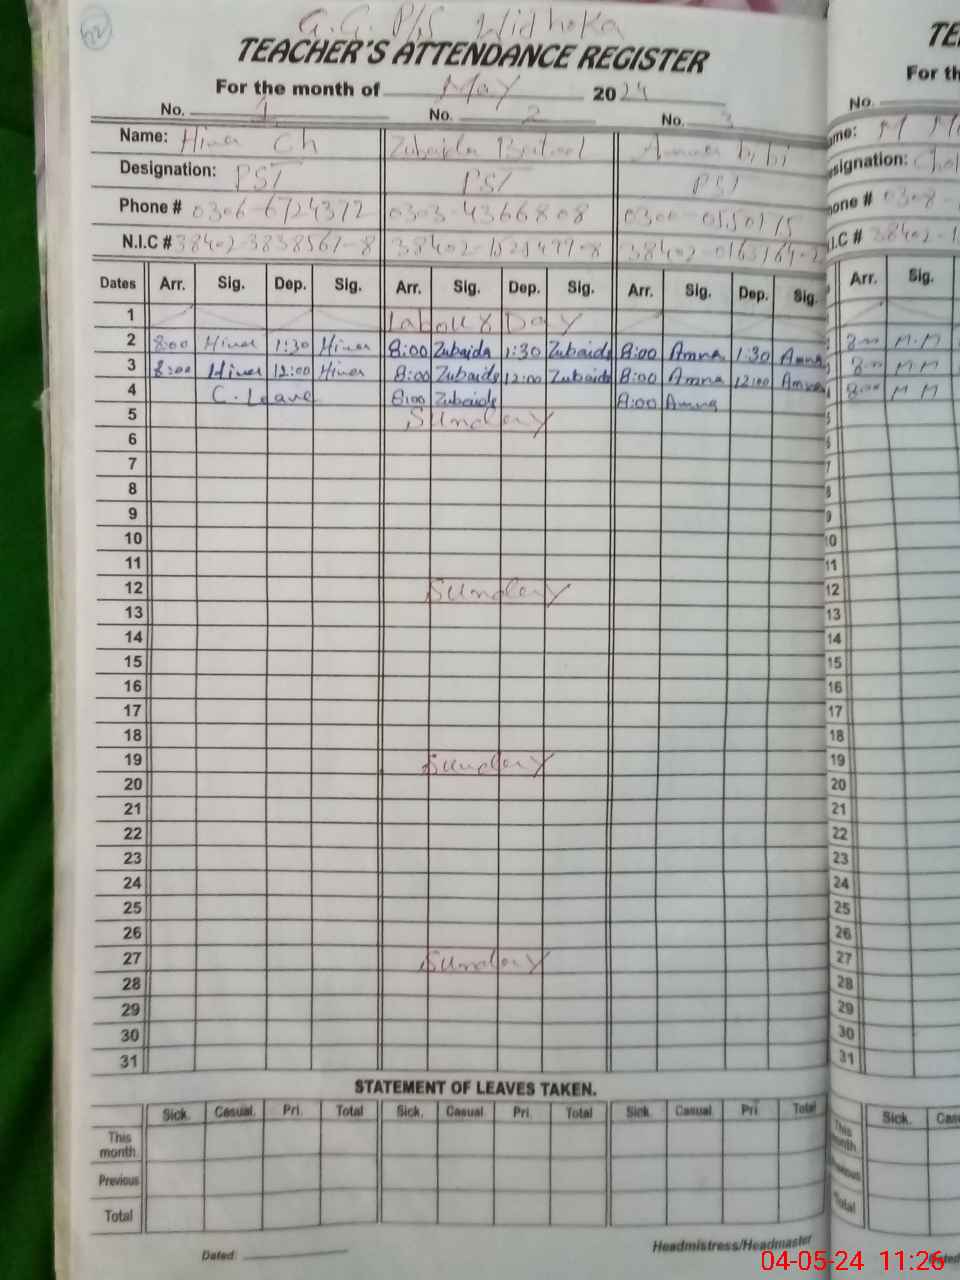 52
G.G. P/S Widhoka
TEACHER'S ATTENDANCE REGISTER
For the month of May 2024
No. 1 No. 2 No. 3
Name: Hina Ch Zubaida Batool Amna bibi
Designation: PST PST PST
Phone # 0306-6724372 0303-4366808 0300-0550175
N.I.C # 38402-3838567-8
Dates Arr. Sig. Dep. Sig. Arr. Sig. Dep. Sig. Arr. Sig. Dep. Sig.
1 Labour Day
2 8:00 Hina 1:30 Hina 8:00 Zubaida 1:30 Zubaida 8:00 Amna 1:30 Amna
3 8:00 Hina 12:00 Hina 8:00 Zubaida 12:00 Zubaida 8:00 Amna 12:00 Amna
4 C. Leave 8:00 Zubaida 8:00 Amna
5 Sunday
6
7
8
9
10
11
12 Sunday
13
14
15
16
17
18
19 Sunday
20
21
22
23
24
25
26
27 Sunday
28
29
30
31
STATEMENT OF LEAVES TAKEN.
Sick. Casual. Pri. Total Sick. Casual Pri. Total Sick. Casual Pri. Total
This month
Previous
Total
Dated: Headmistress/Headmaster
TE
For th
No.
me: M
signation:
hone # 0308-
N.I.C # 38402-1
Arr. Sig.
1
2 8:00 M.M
3 8:00 M M
4 8:00 M M
5
6
7
8
9
10
11
12
13
14
15
16
17
18
19
20
21
22
23
24
25
26
27
28
29
30
31
Sick. Cas
This month
Previous
Total
Dated
04-05-24 11:26